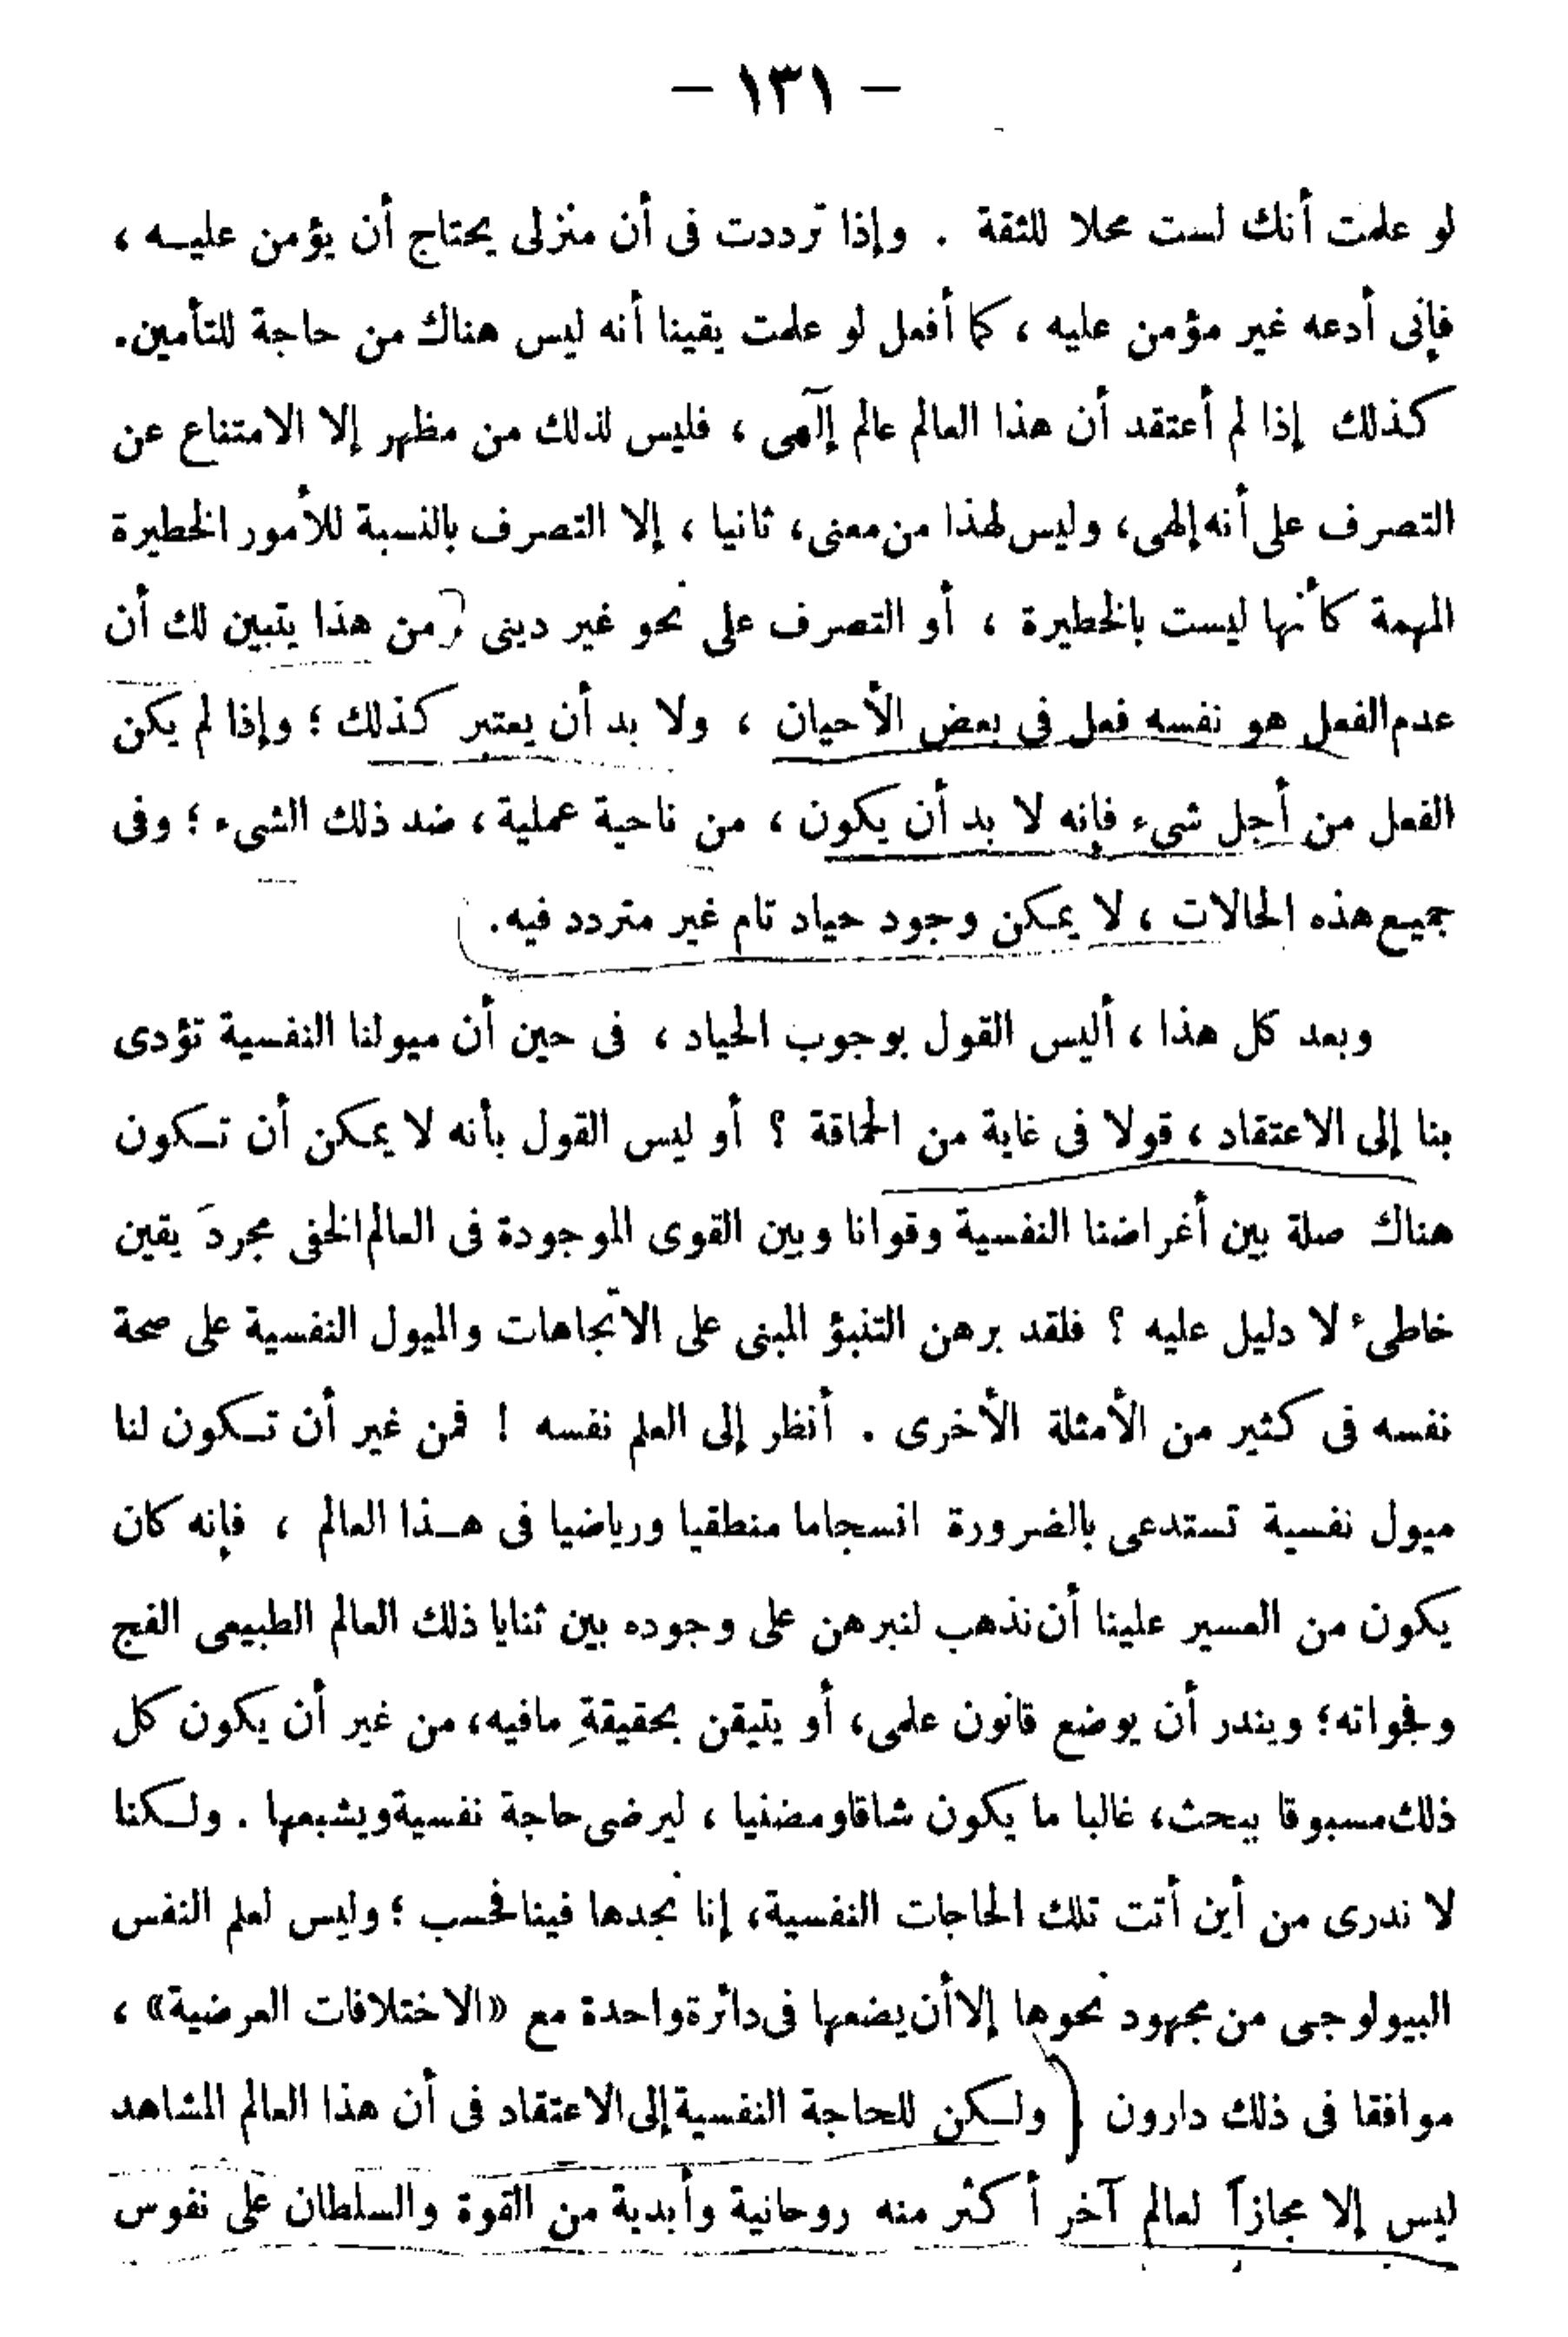 – ١٣١ –
لو علمت أنك لست محلا للثقة . وإذا ترددت فى أن منزلى يحتاج أن يؤمن عليـه ،
فإنى أدعه غير مؤمن عليه ، كما أفعل لو علمت يقينا أنه ليس هناك من حاجة للتأمين.
كذلك إذا لم أعتقد أن هذا العالم عالم إلٓهى ، فليس لذلك من مظهر إلا الامتناع عن
التصرف على أنه إلهى، وليس لهذا من معنى، ثانيا ، إلا التصرف بالنسبة للأمور الخطيرة
المهمة كأنها ليست بالخطيرة ، أو التصرف على نحو غير دينى ومن هذا يتبين لك أن
عدم الفعل هو نفسه فعل فى بعض الأحيان ، ولا بد أن يعتبر كذلك ؛ وإذا لم يكن
الفعل من أجل شىء فإنه لا بد أن يكون ، من ناحية عملية ، ضد ذلك الشىء ؛ وفى
جميع هذه الحالات ، لا يمكن وجود حياد تام غير متردد فيه.
وبعد كل هذا ، أليس القول بوجوب الحياد ، فى حين أن ميولنا النفسية تؤدى
بنا إلى الاعتقاد ، قولا فى غاية من الحماقة ؟ أو ليس القول بأنه لا يمكن أن تـكون
هناك صلة بين أغراضنا النفسية وقوانا وبين القوى الموجودة فى العالم الخفى مجردَ يقين
خاطىء لا دليل عليه ؟ فلقد برهن التنبؤ المبنى على الاتجاهات والميول النفسية على صحة
نفسه فى كثير من الأمثلة الأخرى . أنظر إلى العلم نفسه ! فمن غير أن تـكون لنا
ميول نفسية تستدعى بالضرورة انسجاما منطقيا ورياضيا فى هـذا العالم ، فإنه كان
يكون من العسير علينا أن نذهب لنبرهن على وجوده بين ثنايا ذلك العالم الطبيعى الفج
وفجواته؛ ويندر أن يوضع قانون علمى، أو يتيقن بحقيقةِ مافيه، من غير أن يكون كل
ذلك مسبوقا ببحث، غالبا ما يكون شاقا ومضنيا ، ليرضى حاجة نفسية ويشبعها . ولـكنا
لا ندرى من أين أتت تلك الحاجات النفسية، إنا نجدها فينا فحسب ؛ وليس لعلم النفس
البيولوجى من مجهود نحوها إلا أن يضعها فى دائرة واحدة مع «الاختلافات العرضية» ،
موافقا فى ذلك دارون ( ولـكن للحاجة النفسية إلى الاعتقاد فى أن هذا العالم المشاهد
ليس إلا مجازاً لعالم آخر أكثر منه روحانية وأبدية من القوة والسلطان على نفوس